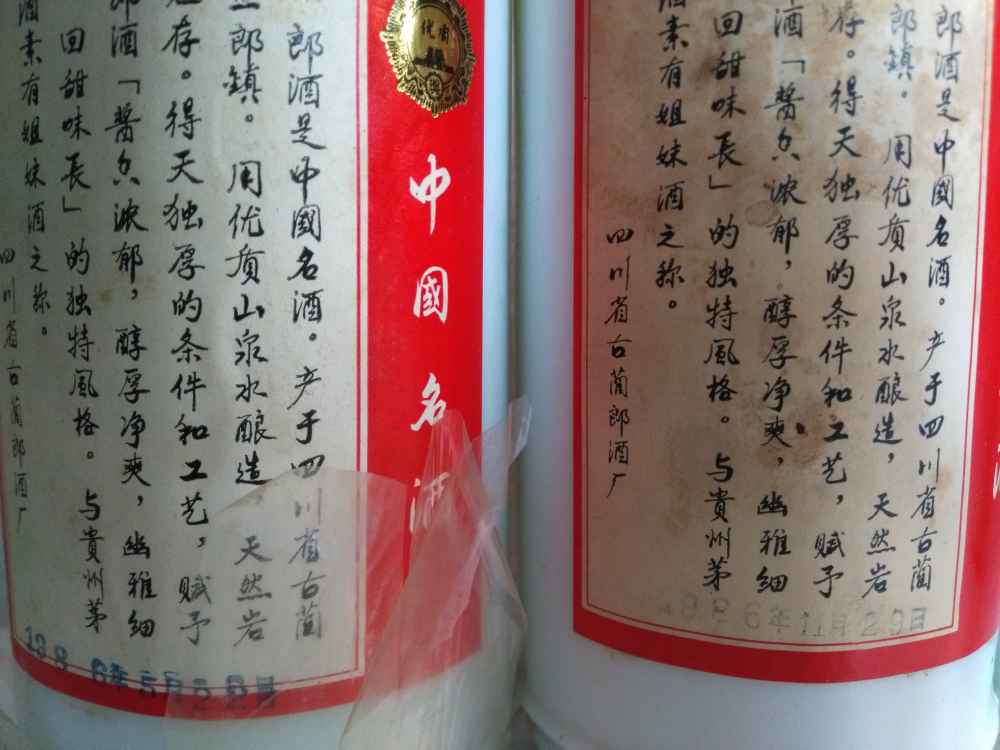 优质
中國名酒
郎酒是中國名酒。产于四川省古蔺
郎鎮。用优质山泉水酿造,天然岩
存。得天独厚的条件和工艺,赋予
郎酒「醬香浓郁,醇厚净爽,幽雅细
回甜味長」的独特風格。与貴州茅
酒素有姐妹酒之称。
四川省古蔺郎酒厂
郎酒是中國名酒。产于四川省古蔺
郎鎮。用优质山泉水酿造,天然岩
存。得天独厚的条件和工艺,赋予
酒「醬香浓郁,醇厚净爽,幽雅细
回甜味長」的独特風格。与貴州茅
酒素有姐妹酒之称。
四川省古蔺郎酒厂
986年11月20日